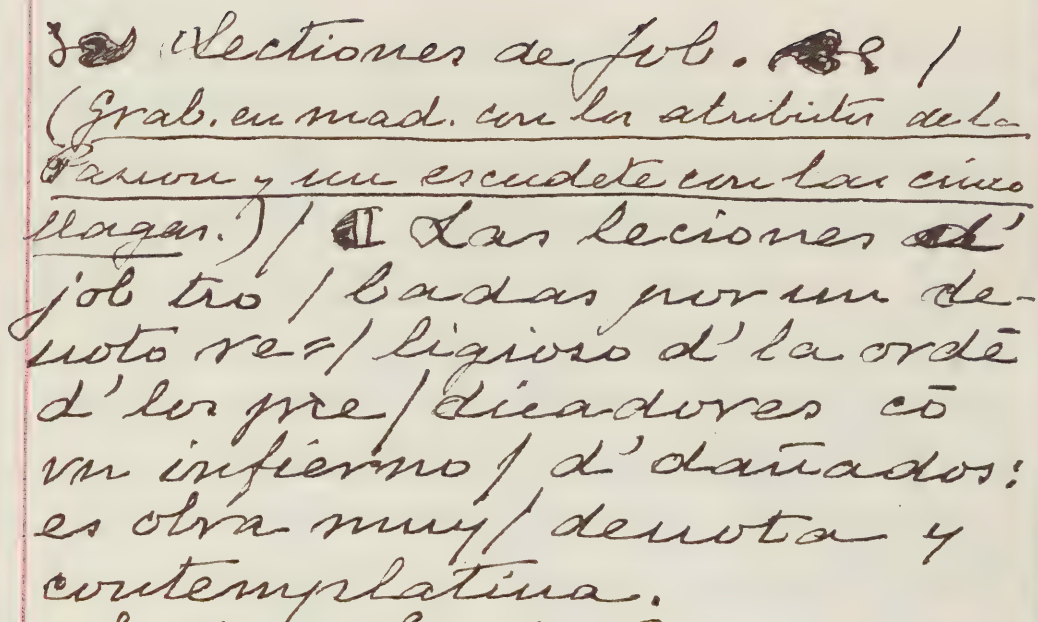 ❧ Lectiones de Job. ☙ /
(Grab. en mad. con los atributos de la
Pasion y un escudete con las cinco
llagas.) / ¶ Las leciones d'
job tro / badas por un de-
uoto re=/ ligioso d' la ordē
d' los pre / dicadores cō
vn infierno / d' dañados:
es obra muy / deuota y
contemplatiua.